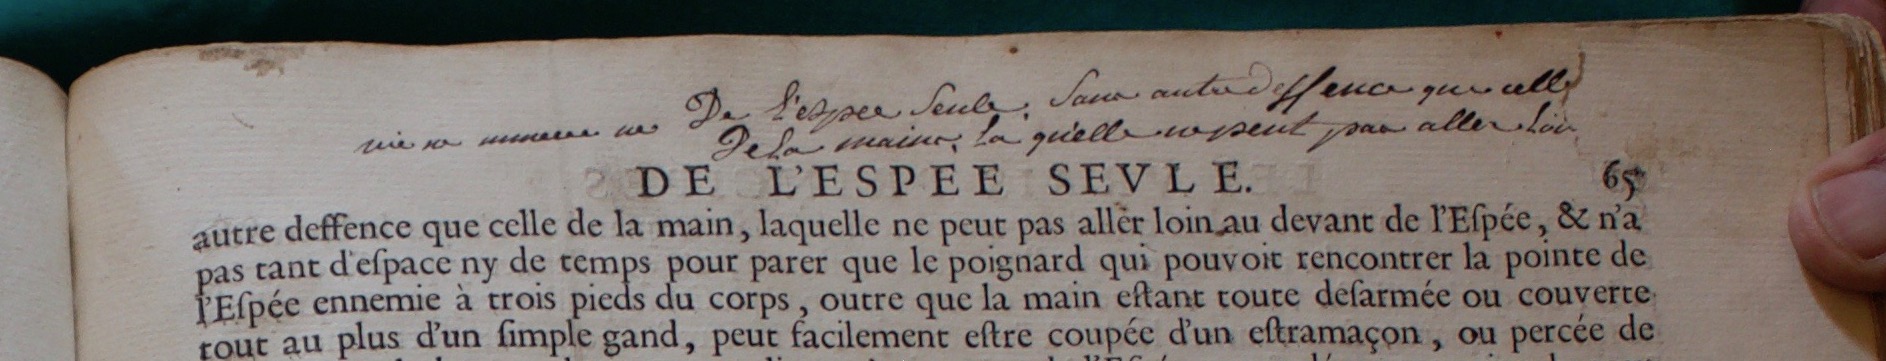 De l'espee Seule. Sans autre deffence que celle
De La maine, la qu'elle ne peut pas aller loin
DE L'ESPEE SEVLE. 65
autre deffence que celle de la main, laquelle ne peut pas aller loin au devant de l'Eſpée, & n'a
pas tant d'eſpace ny de temps pour parer que le poignard qui pouvoit rencontrer la pointe de
l'Eſpée ennemie à trois pieds du corps, outre que la main eſtant toute deſarmée ou couverte
tout au plus d'un ſimple gand, peut facilement eſtre coupée d'un eſtramaçon, ou percée de